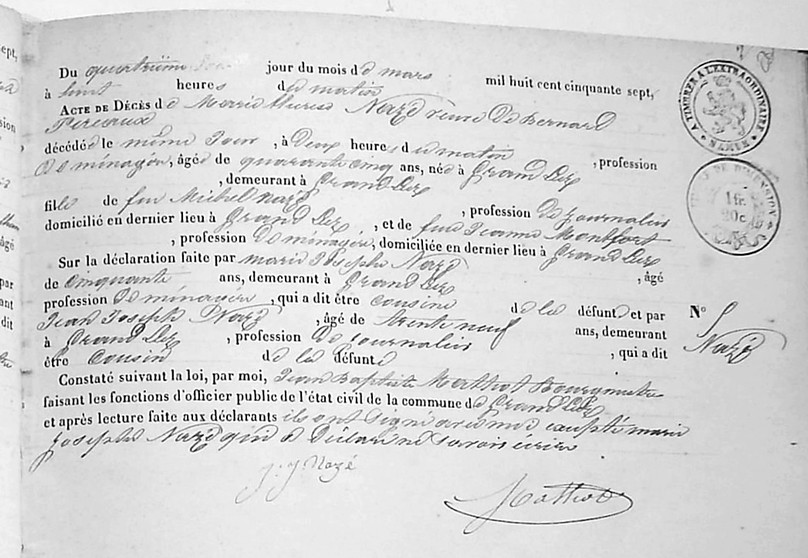 Du quatrième jour du mois de mars mil huit cent cinquante sept,
à huit heures du matin
ACTE DE DÉCÈS de Marie therese Nazé veuve de Bernard
Percaux
décédée le même jour, à deux heures du matin, profession
de ménagère, âgée de quarante cinq ans, née à Grand Lez
, demeurant à Grand Lez
fille de feu Michel Nazé, profession de journalier
domicilié en dernier lieu à Grand Lez, et de feue Jeanne Montfort
, profession de ménagère, domiciliée en dernier lieu à Grand Lez
Sur la déclaration faite par marie Josephe Nazé, âgé
de cinquante ans, demeurant à Grand Lez
profession de ménagère, qui a dit être cousine de la défunte et par
Jean Joseph Nazé, âgé de trente neuf ans, demeurant
à Grand Lez, profession de journalier, qui a dit
être cousin de la défunte
Constaté suivant la loi, par moi, Jean Baptiste Mathot Bourgmestre
faisant les fonctions d'officier public de l'état civil de la commune de Grand Lez
et après lecture faite aux déclarants ils ont signé avec moi excepté marie
Josephe Nazé qui a déclaré ne savoir écrire
J. J. Nazé
Mathot
N° 5
Nazé
A TIMBRER A L'EXTRAORDINAIRE
TIMBRE DE DIMENSION
1 fr.
20 c
sept,
sion
âgé
par
ant
dit